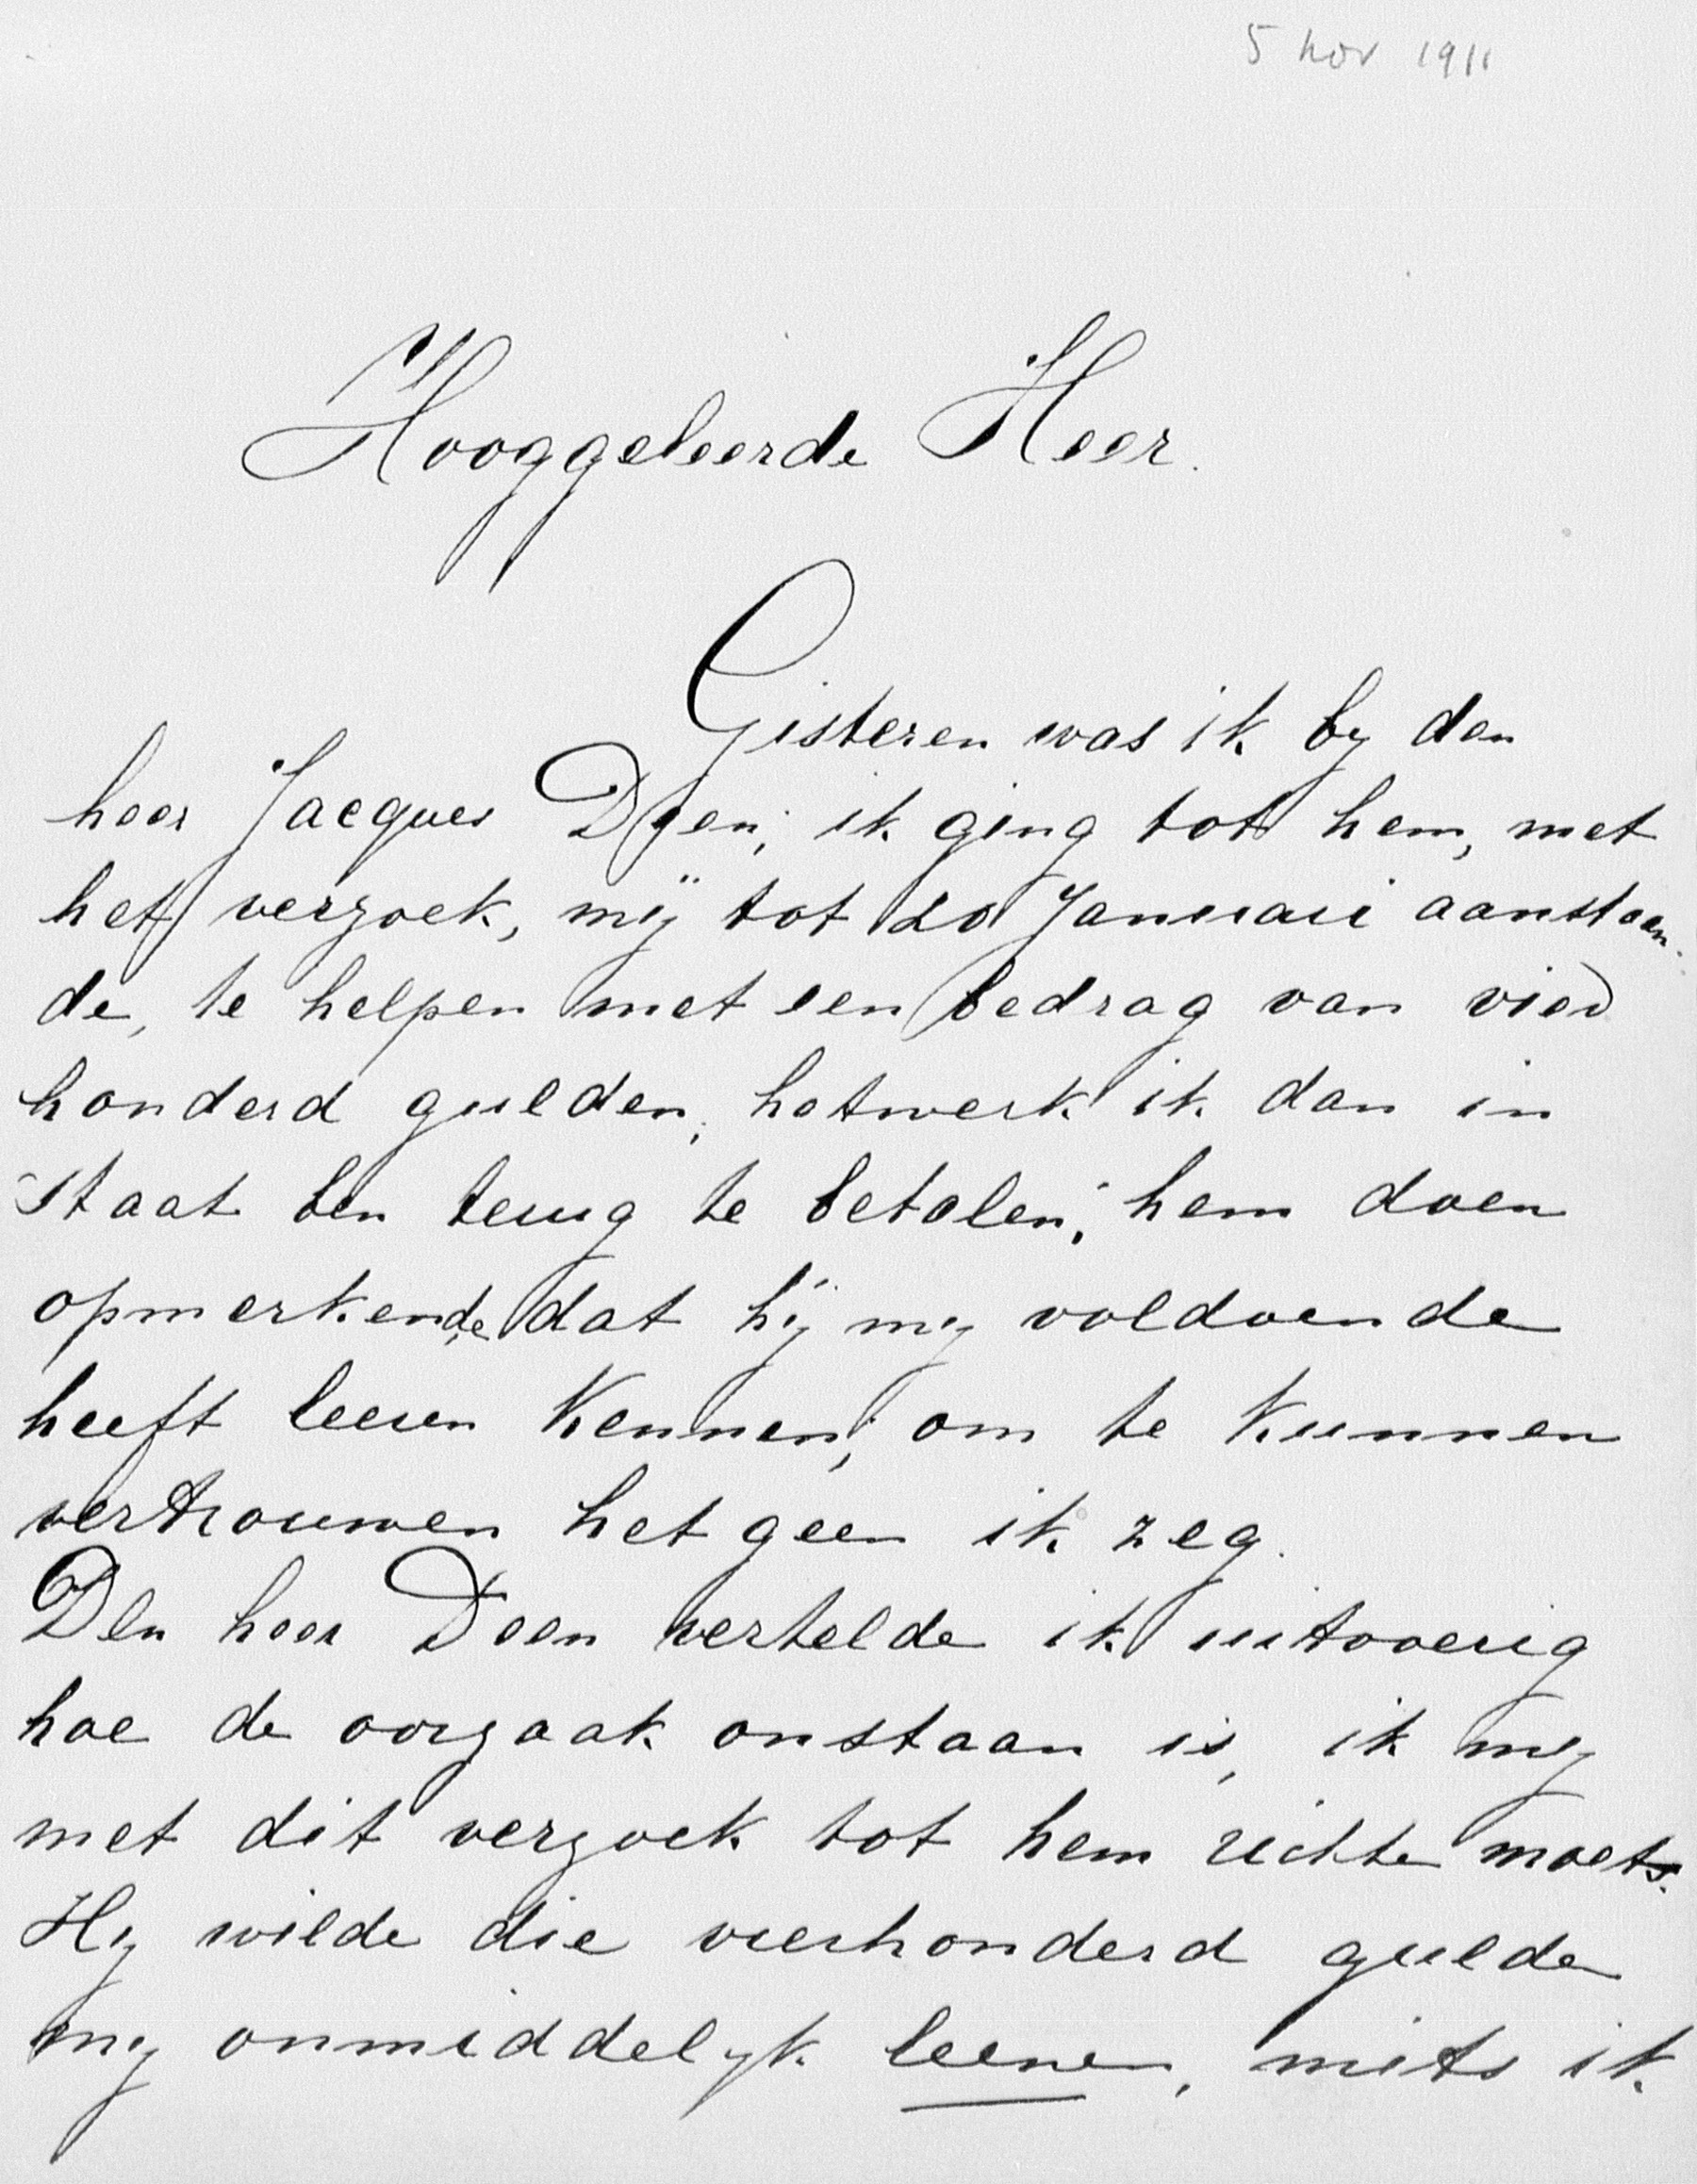 5 nov 1911
Hooggeleerde Heer.
Gisteren was ik by den
heer Jacques Deen; ik ging tot hem, met
het verzoek, mij tot 20 Januari aanstaan-
de, te helpen met een bedrag van vier
honderd gulden, hetwerk ik dan in
staat ben terug te betalen; hem doen
opmerkende dat hij my voldoende
heeft leeren kennen, om te kunnen
vertrouwen het geen ik zeg.
Den heer Deen vertelde ik uitvoerig
hoe de oorzaak onstaan is, ik my
met dit verzoek tot hem richte moets.
Hy wilde die vierhonderd gulden
my onmiddelyk leenen, mits ik